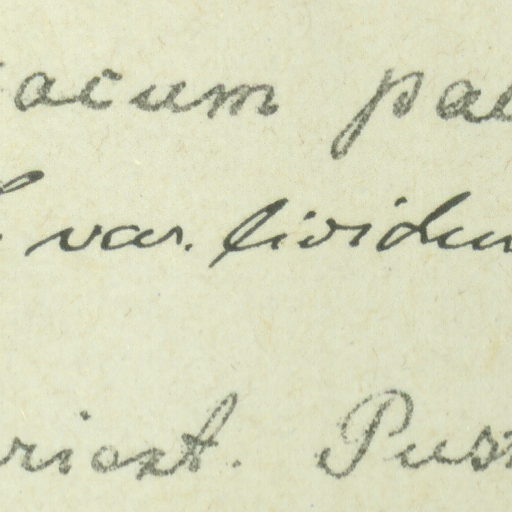 acum pal
var. lividum
orient. Pusz